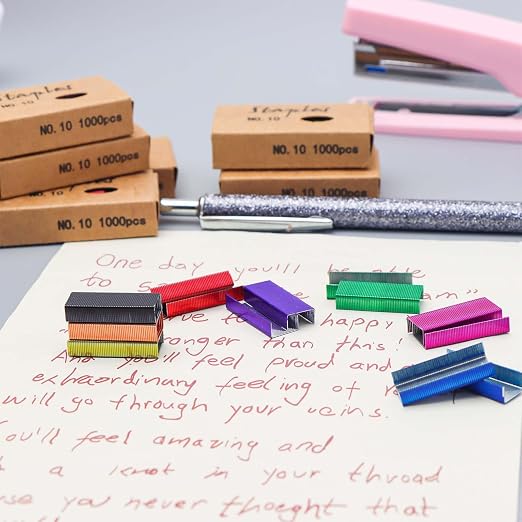 Staples
NO. 10 1000pcs
NO. 10 1000pcs
NO. 10 1000pcs
Staples
NO. 10 1000pcs
NO. 10 1000pcs
One day you'll be able
to s am"
ve to happy
ronger than this!
And you'll feel proud and
exhraordinary feeling of r
will go through your veins.
ou'll feel amazing and
a knot in your throad
se you never thoeght that